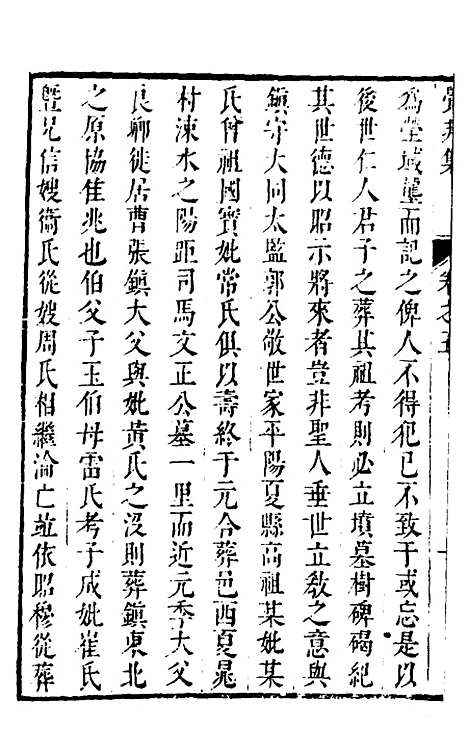 卷之五
為塋域壟而記之俾人不得犯已不致于或忘是以
後世仁人君子之葬其祖考則必立墳墓樹碑碣紀
其世德以昭示將來者豈非聖人垂世立敎之意與
鎮守大同太監郭公敬世家平陽夏縣高祖某妣某
氏曾祖國寶妣常氏俱以壽終于元合葬邑西夏晁
村涑水之陽距司馬文正公墓一里而近元季大父
良卿徙居曹張鎮大父與妣黃氏之沒則葬鎮東北
之原協隹兆也伯父子玉伯母雷氏考子成妣崔氏
曁兄信嫂衞氏從嫂周氏相繼淪亡並依昭穆從葬